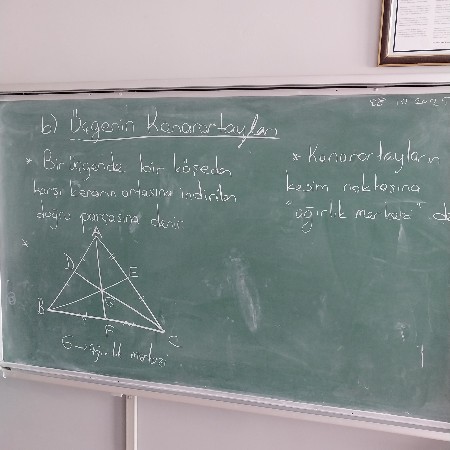 b) Üçgenin Kenarortayları
* Bir üçgende bir köşeden
karşı kenarın ortasına indirilen
doğru parçasına denir.
* Kenarortayların
kesim noktasına
"ağırlık merkezi" de
*
A
D
E
G
B
F
C
G → ağırlık merkezi